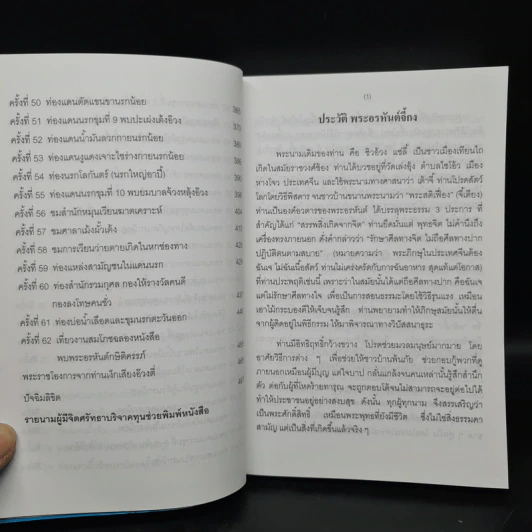 ครั้งที่ 50 ท่องแดนตัดแขนขานรกน้อย
ครั้งที่ 51 ท่องแดนนรกขุมที่ 9 พบปะเผ่งเต้งอ๊วง
ครั้งที่ 52 ท่องแดนน้ำมันลวกกายนรกน้อย
ครั้งที่ 53 ท่องแดนงูแดงเจาะไชร่างกายนรกน้อย
ครั้งที่ 54 ท่องนรกโลกันตร์ (นรกใหญ่อาบี้)
ครั้งที่ 55 ท่องแดนนรกขุมที่ 10 พบยมบาลจ้วงหลุ้งอ๊วง
ครั้งที่ 56 ชมสำนักหมุนเวียนฆาตเคราะห์
ครั้งที่ 57 ชมศาลาเม้งม้วเต้ง
ครั้งที่ 58 ชมการเวียนว่ายตายเกิดในหกช่องทาง
ครั้งที่ 59 ท่องแหล่งสามัญชนในแดนนรก
ครั้งที่ 60 ท่องสำนักรวมกุศล กองให้รางวัลคนดี
กองลงโทษคนชั่ว
ครั้งที่ 61 ท่องบ่อน้ำเลือดและขุมนรกตะวันออก
ครั้งที่ 62 เที่ยวงานสมโภชฉลองหนังสือ
พบพระอรหันต์กษิติครรภ์
พระราชโองการจากท่านเง็กเสียงอ๊วงตี่
ปัจฉิมลิขิต
รายนามผู้มีจิตศรัทธาบริจาคทุนช่วยพิมพ์หนังสือ
(1)
ประวัติ พระอรหันต์จี้กง
พระนามเดิมของท่าน คือ ชิวอ๊วง แซ่ลี้ เป็นชาวเมืองเทียนไถ
เกิดในสมัยราชวงศ์ซ้อง ท่านได้บวชอยู่ที่วัดเล่งอุ้ง ตำบลไซโอ๊ว เมือง
หางโจว ประเทศจีน และใช้พระนามทางศาสนาว่า เต้าจี้ ท่านโปรดสัตว์
โลกโดยวิธีพิสดาร จนชาวบ้านขนานพระนามว่า "พระสติเฟื่อง" (จี้เตียง)
ท่านเป็นองค์อวตารของพระอรหันต์ ได้บรรลุพระธรรม 3 ประการ ที่
สำคัญได้แก่ "สรรพสิ่งเกิดจากจิต" ท่านยึดมั่นแต่ พุทธจิต ไม่คำนึงถึง
เครื่องทรงภายนอก ดั่งคำกล่าวว่า "รักษาศีลทางจิต ไม่ถือศีลทางปาก
ปฏิบัติตนตามสบาย" (หมายความว่า พระภิกษุในประเทศจีนต้อง
ฉันเจ ไม่ฉันเนื้อสัตว์ ท่านไม่เคร่งครัดกับการฉันอาหาร สุดแท้แต่โอกาส)
ที่ท่านประพฤติเช่นนี้ เพราะว่าในสมัยนั้นได้แต่ถือศีลทางปาก คือฉันเจ
แต่ไม่รักษาศีลทางใจ เพื่อเป็นการสอนธรรมะโดยใช้วิธีรุนแรง เหมือน
เอาไม้กระบองตีให้เจ็บจนรู้สึก ท่านพยายามทำให้ภิกษุสมัยนั้นให้ตื่น
จากผู้ติดอยู่ในพิธีกรรม ให้มาพิจารณาทางวิปัสสนาธุระ
ท่านมีอิทธิฤทธิ์กว้างขวาง โปรดช่วยมวลมนุษย์มากมาย โดย
อาศัยวิธีการต่าง ๆ เพื่อช่วยให้ชาวบ้านพ้นภัย ช่วยกอบกู้พวกที่ดู
ภายนอกเหมือนผู้มีบุญ แต่ใจบาป กลั่นแกล้งจนคนเหล่านั้นรู้สึกสำนึก
ตัว ต่อกับผู้ที่โหดร้ายทารุณ จะถูกตอบโต้จนไม่สามารถจะอยู่ต่อไปได้
ทำให้ประชาชนอยู่อย่างสงบสุข ดังนั้น ทุกผู้ทุกนาม จึงสรรเสริญว่า
เป็นพระศักดิ์สิทธิ์ เหมือนพระพุทธที่ยังมีชีวิต ซึ่งไม่ใช่สิ่งธรรมดา
สามัญ แต่เป็นสิ่งที่เกิดขึ้นแล้วจริง ๆ